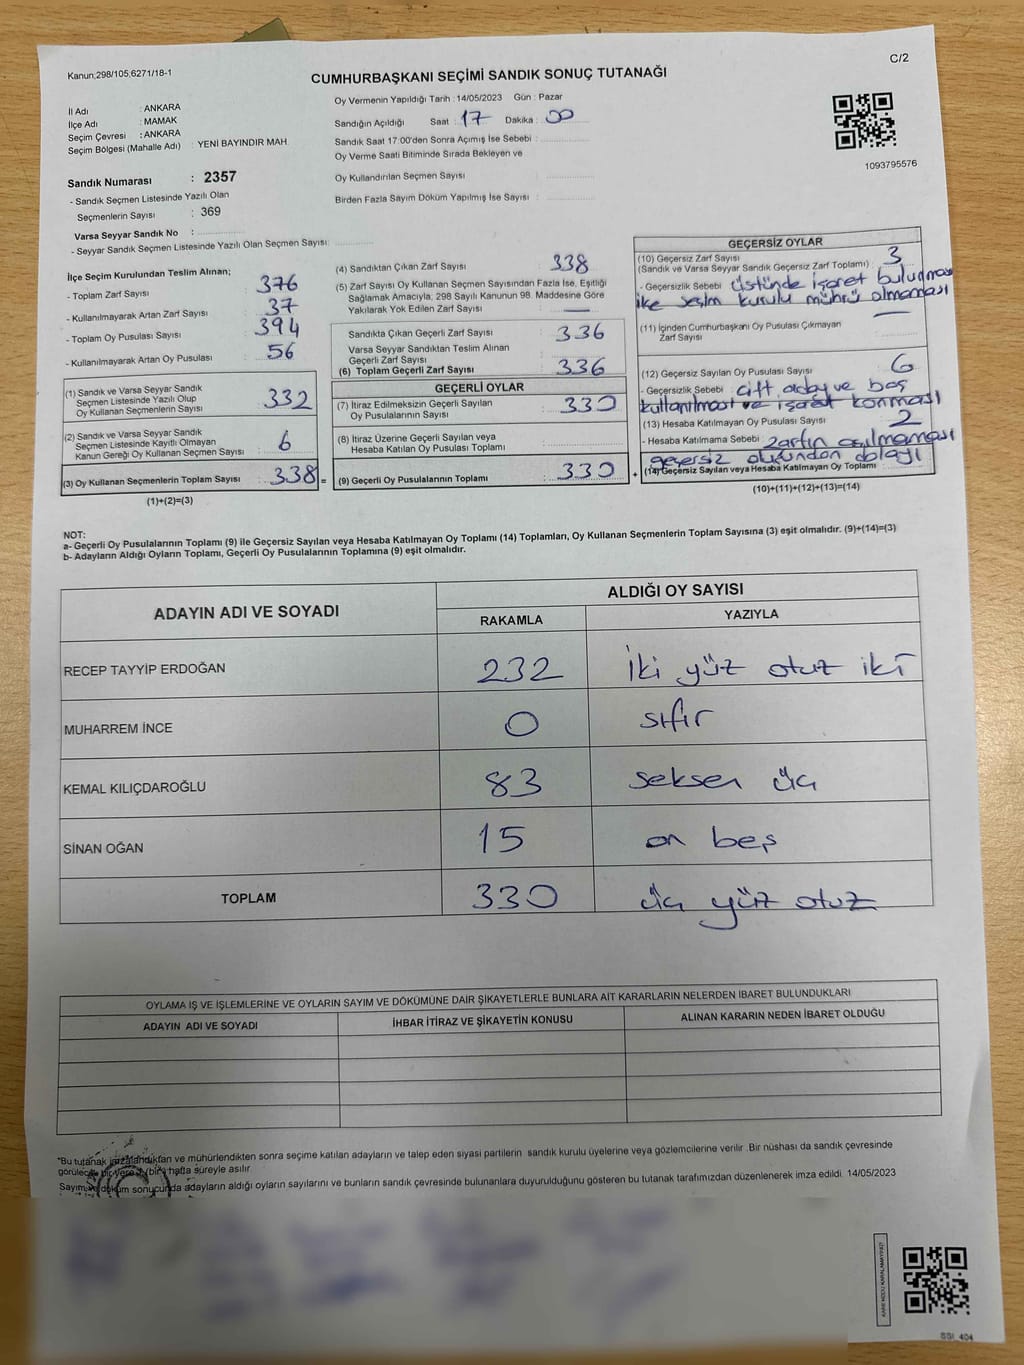 Kanun;298/105,6271/18-1
C/2
CUMHURBAŞKANI SEÇİMİ SANDIK SONUÇ TUTANAĞI
İl Adı : ANKARA
İlçe Adı : MAMAK
Seçim Çevresi : ANKARA
Seçim Bölgesi (Mahalle Adı) : YENİ BAYINDIR MAH
Sandık Numarası : 2357
- Sandık Seçmen Listesinde Yazılı Olan
Seçmenlerin Sayısı : 369
Varsa Seyyar Sandık No :
- Seyyar Sandık Seçmen Listesinde Yazılı Olan Seçmen Sayısı:
Oy Vermenin Yapıldığı Tarih : 14/05/2023 Gün : Pazar
Sandığın Açıldığı Saat : 17 Dakika : 00
Sandık Saat 17:00'den Sonra Açımış İse Sebebi :
Oy Verme Saati Bitiminde Sırada Bekleyen ve
Oy Kullandırılan Seçmen Sayısı
Birden Fazla Sayım Döküm Yapılmış İse Sayısı :
1093795576
İlçe Seçim Kurulundan Teslim Alınan;
- Toplam Zarf Sayısı : 376
- Kullanılmayarak Artan Zarf Sayısı : 37
- Toplam Oy Pusulası Sayısı : 394
- Kullanılmayarak Artan Oy Pusulası : 56
(1) Sandık ve Varsa Seyyar Sandık
Seçmen Listesinde Yazılı Olup
Oy Kullanan Seçmenlerin Sayısı : 332
(2) Sandık ve Varsa Seyyar Sandık
Seçmen Listesinde Kayıtlı Olmayan
Kanun Gereği Oy Kullanan Seçmen Sayısı : 6
(3) Oy Kullanan Seçmenlerin Toplam Sayısı : 338 =
(1)+(2)=(3)
(4) Sandıktan Çıkan Zarf Sayısı : 338
(5) Zarf Sayısı Oy Kullanan Seçmen Sayısından Fazla İse, Eşitliği
Sağlamak Amacıyla, 298 Sayılı Kanunun 98. Maddesine Göre
Yakılarak Yok Edilen Zarf Sayısı : —
Sandıkta Çıkan Geçerli Zarf Sayısı : 336
Varsa Seyyar Sandıktan Teslim Alınan
Geçerli Zarf Sayısı
(6) Toplam Geçerli Zarf Sayısı : 336
GEÇERLİ OYLAR
(7) İtiraz Edilmeksizin Geçerli Sayılan
Oy Pusulalarının Sayısı : 330
(8) İtiraz Üzerine Geçerli Sayılan veya
Hesaba Katılan Oy Pusulası Toplamı :
(9) Geçerli Oy Pusulalarının Toplamı : 330 +
GEÇERSİZ OYLAR
(10) Geçersiz Zarf Sayısı : 3
(Sandık ve Varsa Seyyar Sandık Geçersiz Zarf Toplamı)
- Geçersizlik Sebebi : üstünde işaret bulunması
ilçe seçim kurulu mührü olmaması
(11) İçinden Cumhurbaşkanı Oy Pusulası Çıkmayan —
Zarf Sayısı
(12) Geçersiz Sayılan Oy Pusulası Sayısı : 6
- Geçersizlik Sebebi : çift aday ve boş
kullanılması ve işaret konması
(13) Hesaba Katılmayan Oy Pusulası Sayısı : 2
- Hesaba Katılmama Sebebi : zarfın açılmaması
geçersiz oluşundan dolayı
(14) Geçersiz Sayılan veya Hesaba Katılmayan Oy Toplamı :
(10)+(11)+(12)+(13)=(14)
NOT:
a- Geçerli Oy Pusulalarının Toplamı (9) ile Geçersiz Sayılan veya Hesaba Katılmayan Oy Toplamı (14) Toplamları, Oy Kullanan Seçmenlerin Toplam Sayısına (3) eşit olmalıdır. (9)+(14)=(3)
b- Adayların Aldığı Oyların Toplamı, Geçerli Oy Pusulalarının Toplamına (9) eşit olmalıdır.
ADAYIN ADI VE SOYADI
ALDIĞI OY SAYISI
RAKAMLA YAZIYLA
RECEP TAYYİP ERDOĞAN 232 İki yüz otuz iki
MUHARREM İNCE 0 sıfır
KEMAL KILIÇDAROĞLU 83 seksen üç
SİNAN OĞAN 15 on beş
TOPLAM 330 üç yüz otuz
OYLAMA İŞ VE İŞLEMLERİNE VE OYLARIN SAYIM VE DÖKÜMÜNE DAİR ŞİKAYETLERLE BUNLARA AİT KARARLARIN NELERDEN İBARET BULUNDUKLARI
ADAYIN ADI VE SOYADI İHBAR İTİRAZ VE ŞİKAYETİN KONUSU ALINAN KARARIN NEDEN İBARET OLDUĞU
*Bu tutanak imzalandıktan ve mühürlendikten sonra seçime katılan adayların ve talep eden siyasi partilerin sandık kurulu üyelerine veya gözlemcilerine verilir .Bir nüshası da sandık çevresinde
görülecek bir yere 1 (bir) hafta süreyle asılır.
Sayım ve döküm sonucunda adayların aldığı oyların sayılarını ve bunların sandık çevresinde bulunanlara duyurulduğunu gösteren bu tutanak tarafımızdan düzenlenerek imza edildi. 14/05/2023
KAREKODU KARALAMAYINIZ!
SSI_404